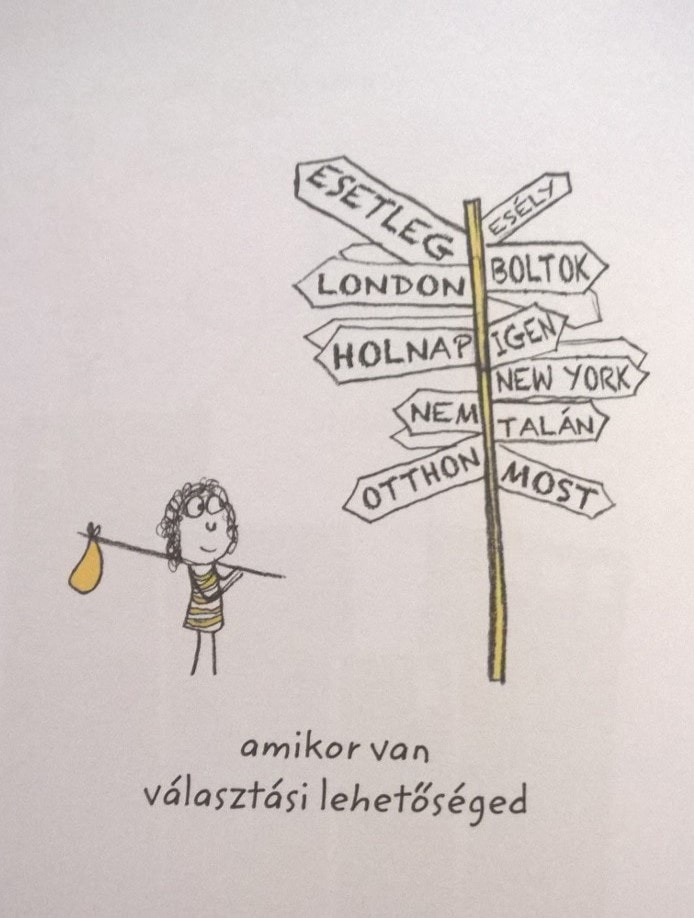 ESETLEG
ESÉLY
LONDON
BOLTOK
HOLNAP
IGEN
NEW YORK
NEM
TALÁN
OTTHON
MOST
amikor van
választási lehetőséged